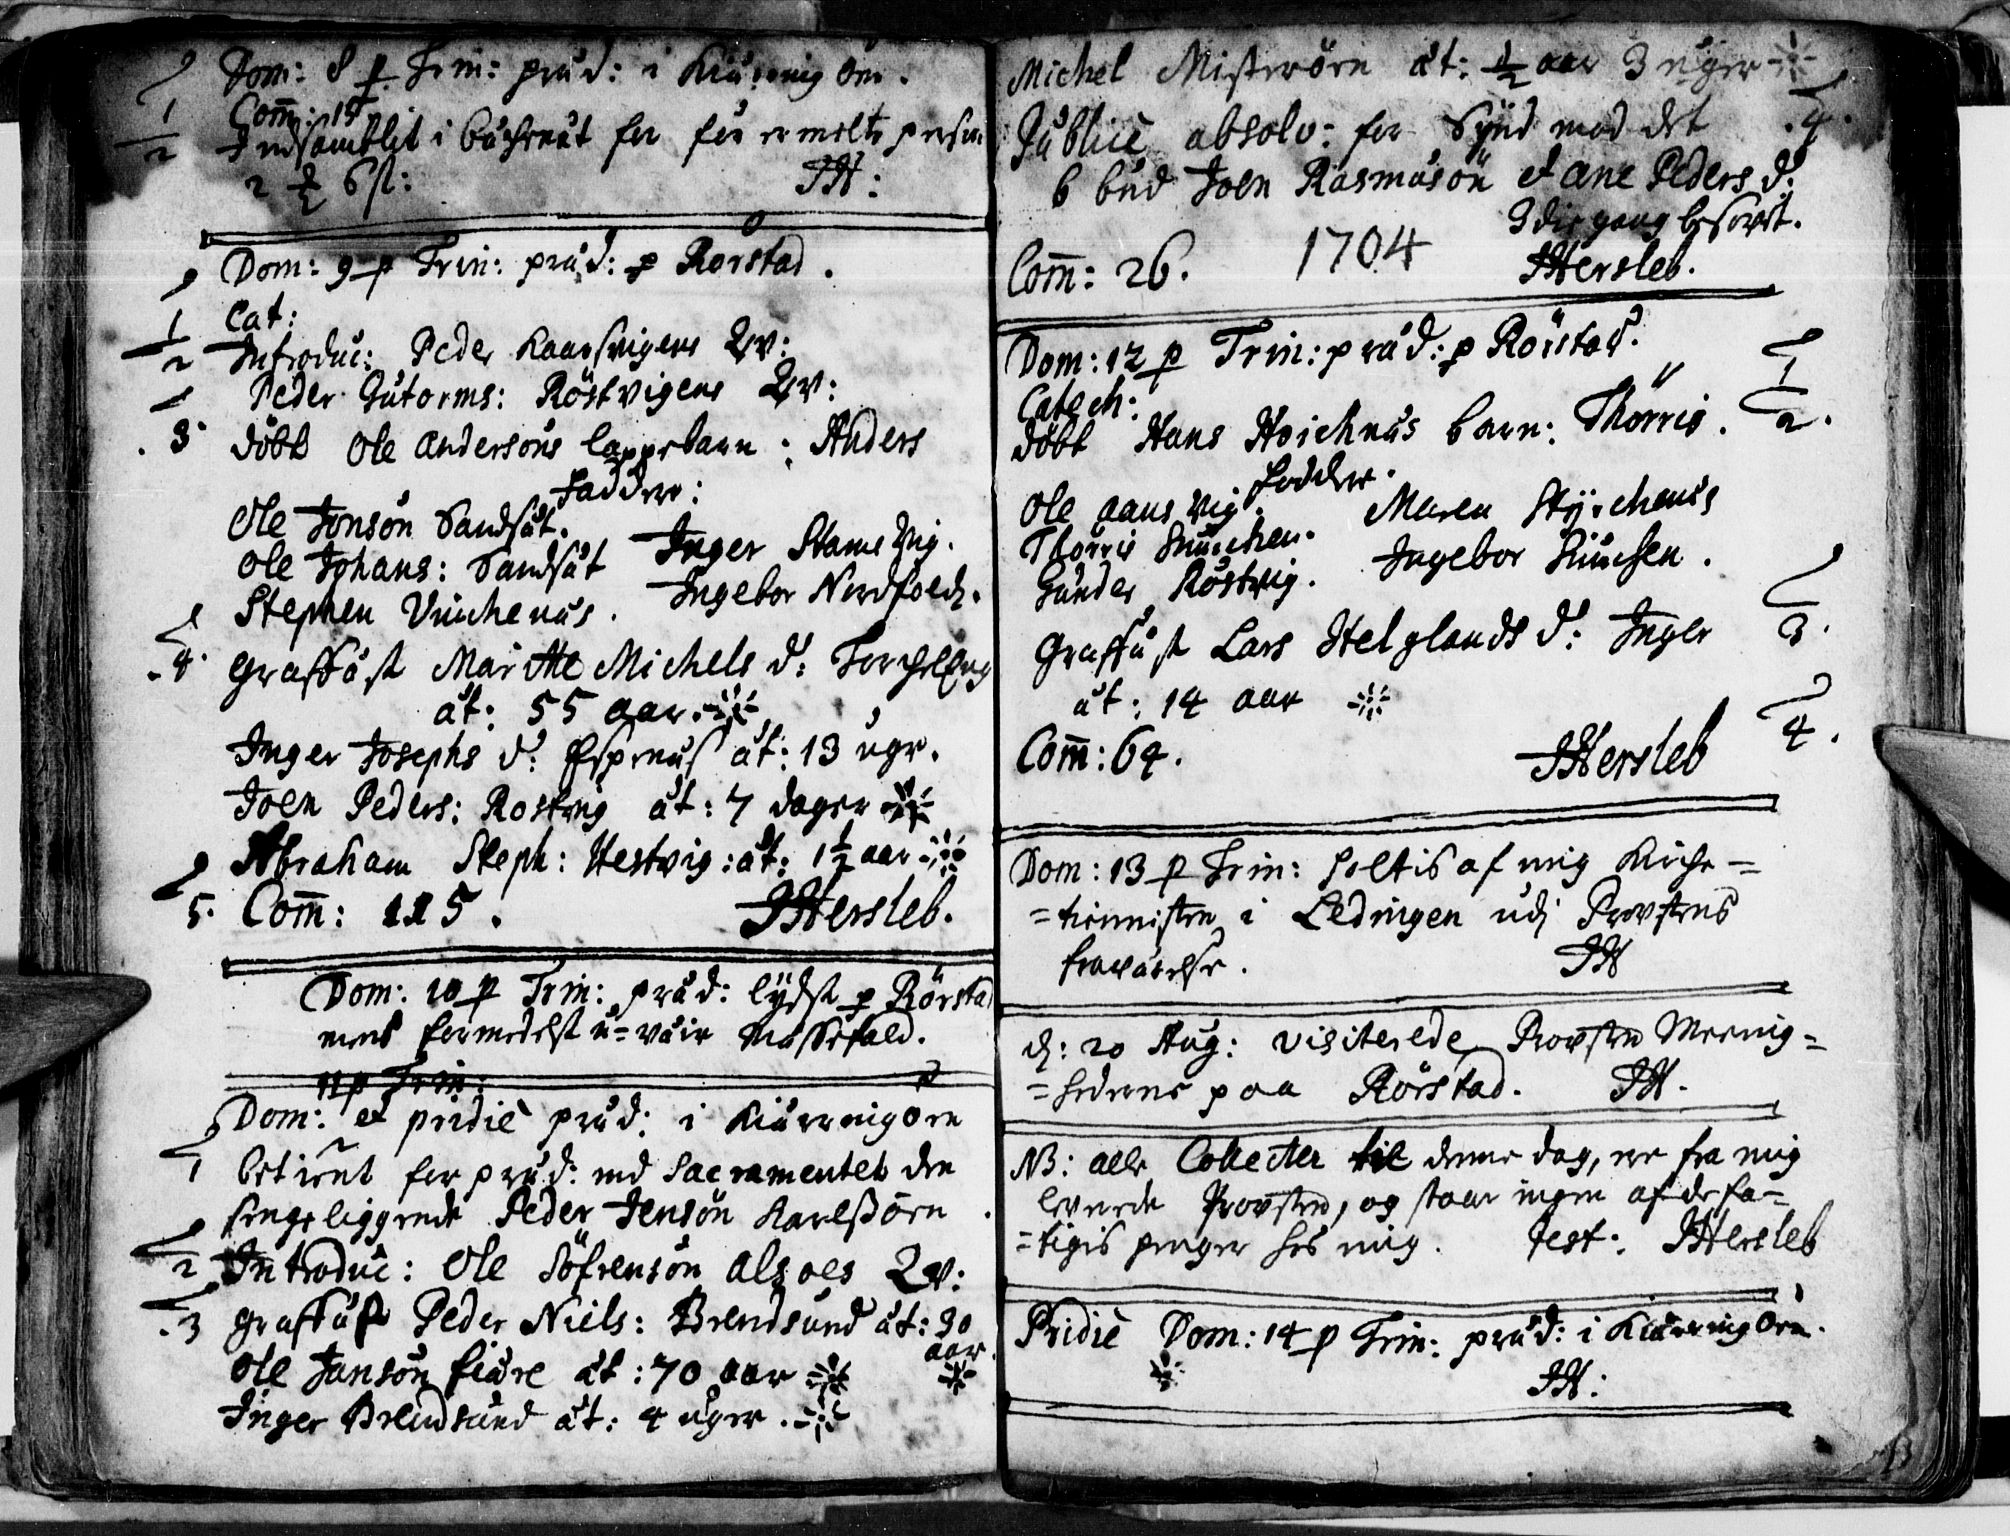 Dom: 8 p Trin: præd: i Kiærring öen.
1 Com̄: 15
2 Indsamblet i bösserne for før ermelte person
2 ½ ß st: JH:
Dom: 9 p Trin: præd: p Rörstad.
1 Cat:
2 Introduc: Peder Kaarsvigens Qv:
Peder Gutorms: Röstvigens Qv:
3 döbt Ole Andersöns lappebarn: Anders
Faddere:
Ole Jonsön Sandsät.
Ole Johans: Sandsät Inger Stamsvig.
Stephen Vinchenæs. Ingebor Nordfold.
4 Graffäst Marithe Michels d: Torchelseng
ät: 55 aar.
Inger Josephs d: Espenæs ät: 13 uger.
Joen Peders: Rostvig ät: 7 dager
Abraham Steph: Hestvig: ät: 1½ aar
5. Com̄: 115. JHersleb.
Dom: 10 p Trin: præd: lydst p Rörstad
mens formedelst u-vair Messefald.
11 p Trin:
Dom: et pridie præd: i Kiærringöen
1 betient for præd: med Sacramentet den
sengeliggende Peder Jensön Karlsöen.
2 Introduc: Ole Söfrensön Alsoes Qv:
3 Graffäst Peder Niels: Brendsund ät: 30
aar.
Ole Jansön fiære ät: 70 aar
Inger Brendsund ät: 4 uger.
Michel Misterören ät: ½ aar 3 uger
Publicè absolv: for Synd mod det 4.
6 bud Joen Rasmusön et Ane Peders d:
3die gang besovet.
Com̄: 26. 1704 JHersleb.
Dom: 12 p Trin: præd: p Rörstad.
Catech: 1
döbt Hans Hoichnæs barn: Thorris. 2.
Fodder.
Ole Aansvig. Maren Styrchenæs
Thörris Finnchen. Ingebor Finnchen.
Gunder Röstvig.
Graffäst Lars Helglands d: Inger 3.
ät: 14 aar
Com̄: 64. JHersleb 4.
Dom: 13 p Trin: holtis af mig Kirche-
-tiennisten i Ledingen udj Provstens
fraværelse. JH
d: 20 Aug: visiterede Provsten Meenig-
-hedens paa Rörstad. JH.
NB: alle Collecter til denne dag, ere fra mig
leverede Provsten, og staar ingen af de fa-
-tigis penger hos mig. test: JHersleb
Pridiè Dom: 14 p Trin: præd: i Kiærringöen.
JH: